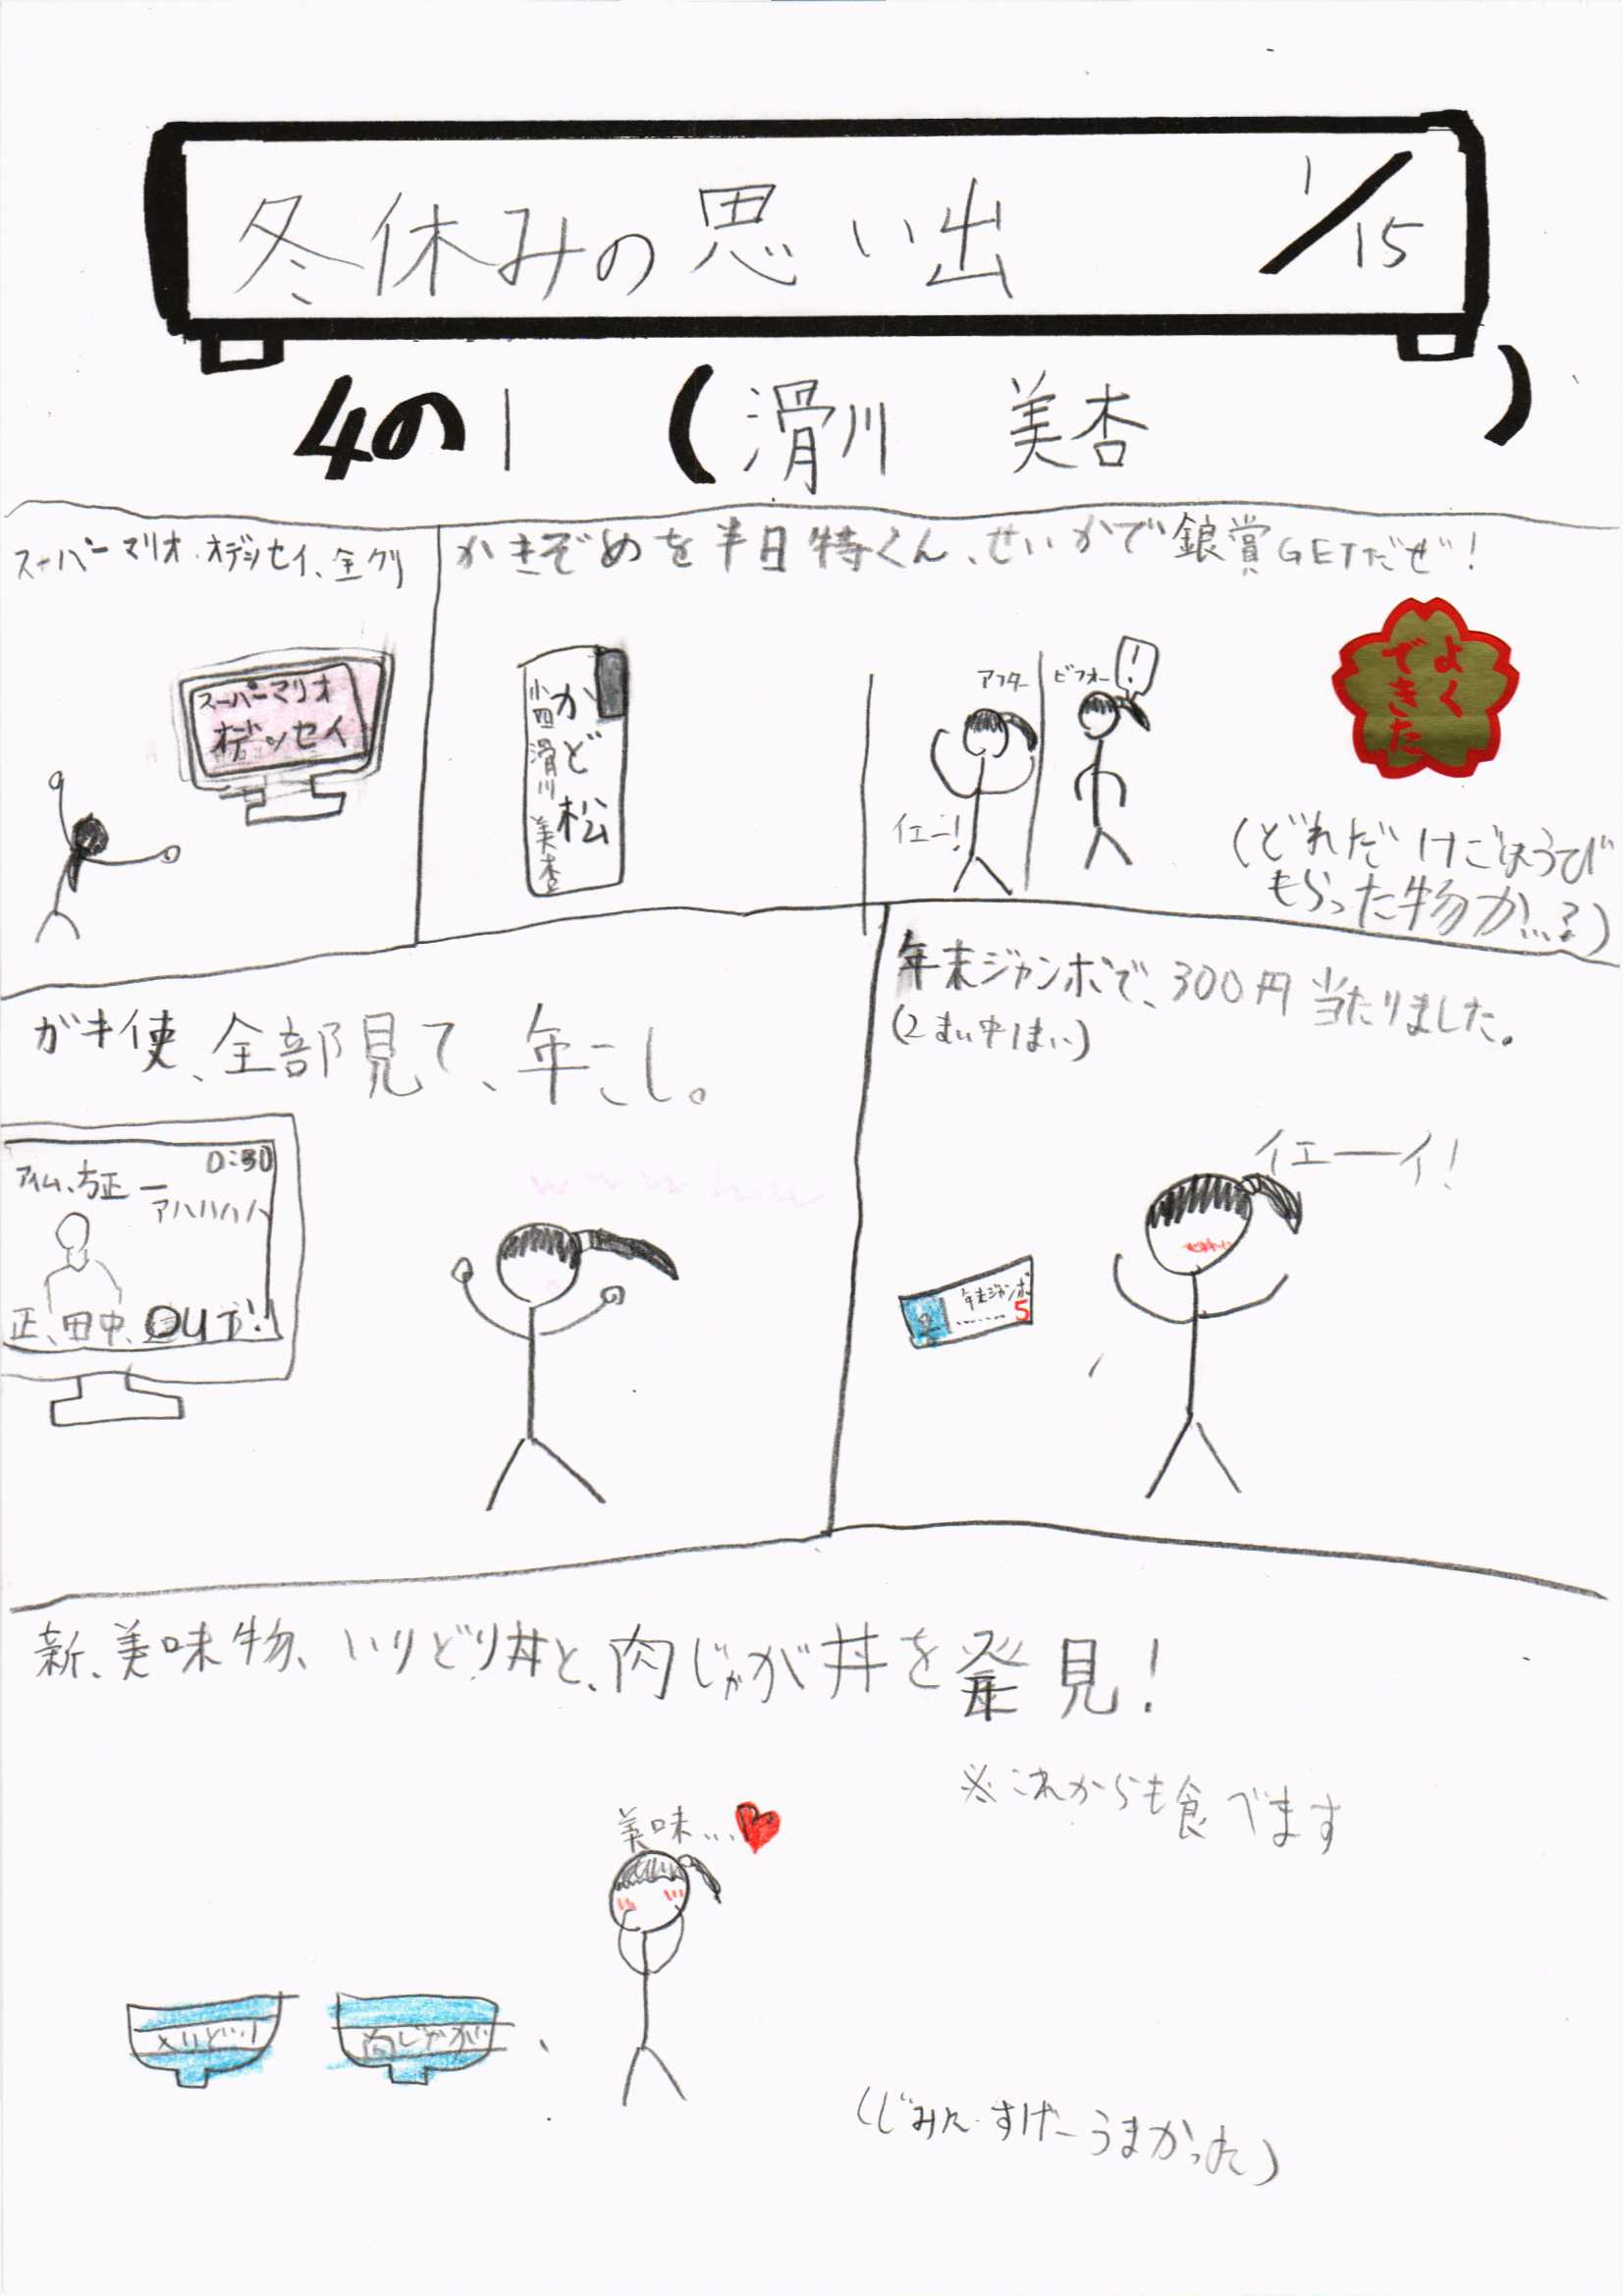 冬休みの思い出 1/15
4の1 (滑川 美杏)
スーパーマリオ.オデッセイ、全クリ
スーパーマリオ
オデッセイ
かきぞめを半日特くん、せいかで銀賞GETだぜ!
かど松
小四 滑川 美杏
アフター
イエーイ!
ビフォー
!
よく
できた
(どれだけごほうび
もらった物か…?)
ガキ使、全部見て、年こし。
0:30
アイム、方正ー
アハハハハ
正、田中、OUT!!
wwwww
年末ジャンボで、300円当たりました。
(2まい中1まい)
イエーーイ!
年末ジャンボ
5
新、美味物、いりどり丼と、肉じゃが丼を発見!
※これからも食べます
美味…
いりどり
肉じゃが
(じみに.すげーうまかった)